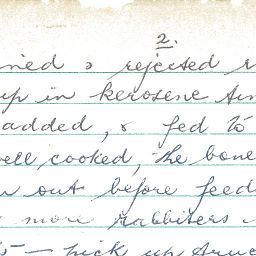 2.
rejected
up in kerosene
added, & fed to
well cooked, the bone
out before feed
more rabbiters
pick up